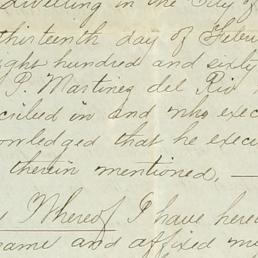 dwelling in the City of
thirteenth day of Febru
ight hundred and sixty
P. Martinez del Rio
cribed in and who exec
nowledged that he execu
therein mentioned. —
s Whereof I have here
name and affixed m